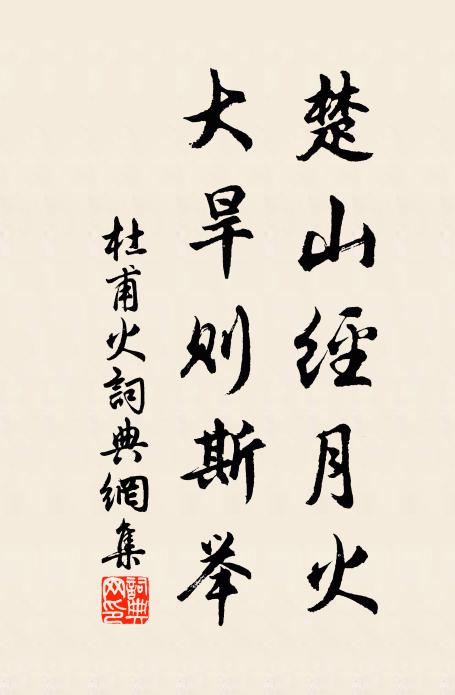 楚山經月火
大旱则斯举
杜甫火詞典網集
詞典网印